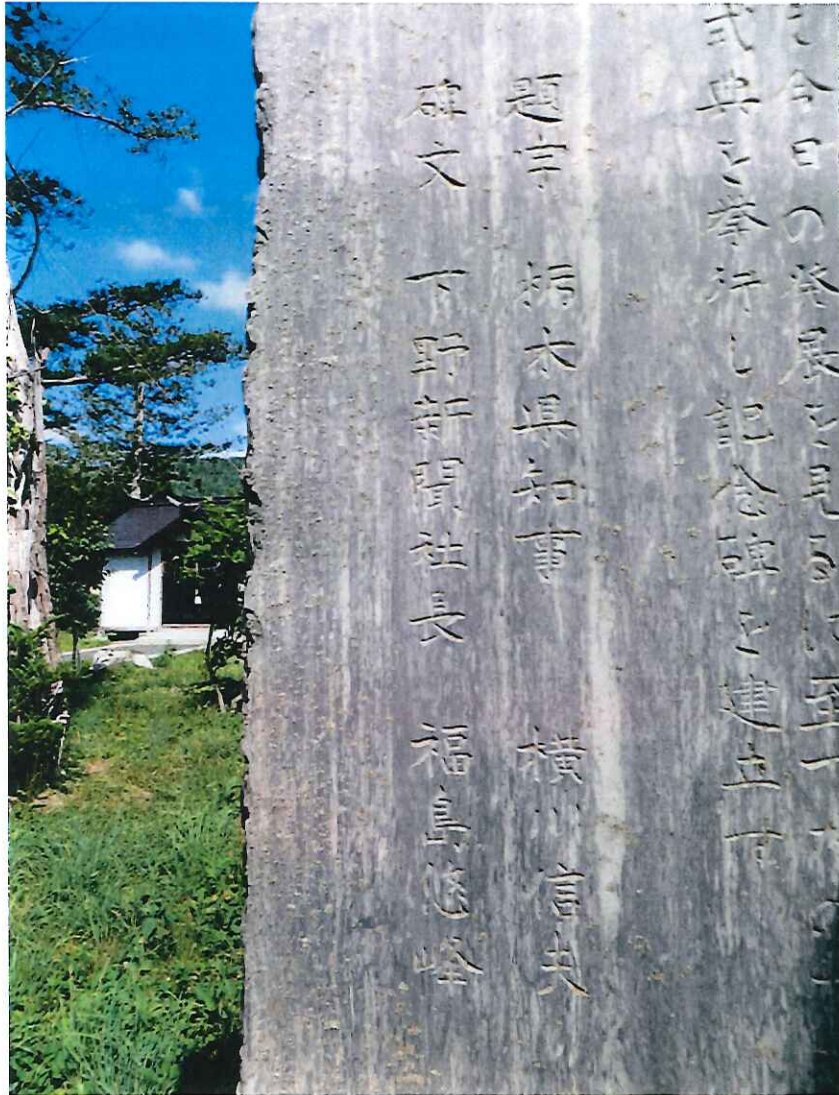 今日の発展を見るに至
式典を挙行し記念碑を建立す
題字 栃木県知事 横川信夫
碑文 下野新聞社長 福島悠峰